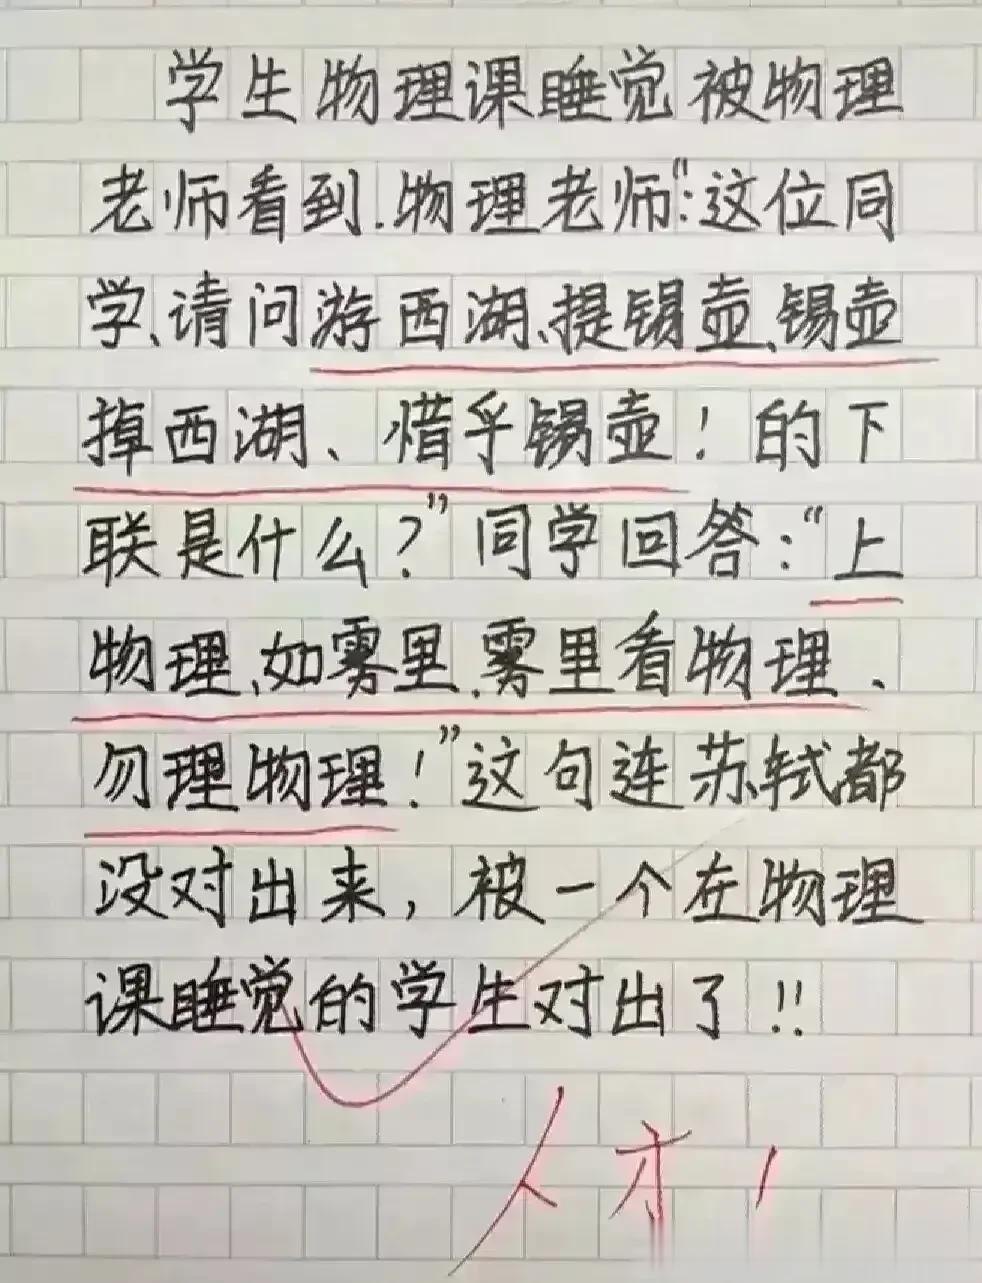 学生物理课睡觉被物理
老师看到.物理老师":这位同
学、请问游西湖、提锡壶、锡壶
掉西湖、惜乎锡壶!的下
联是什么?"同学回答:"上
物理、如雾里、雾里看物理、
勿理物理!"这句连苏轼都
没对出来,被一个在物理
课睡觉的学生对出了!!
人才!